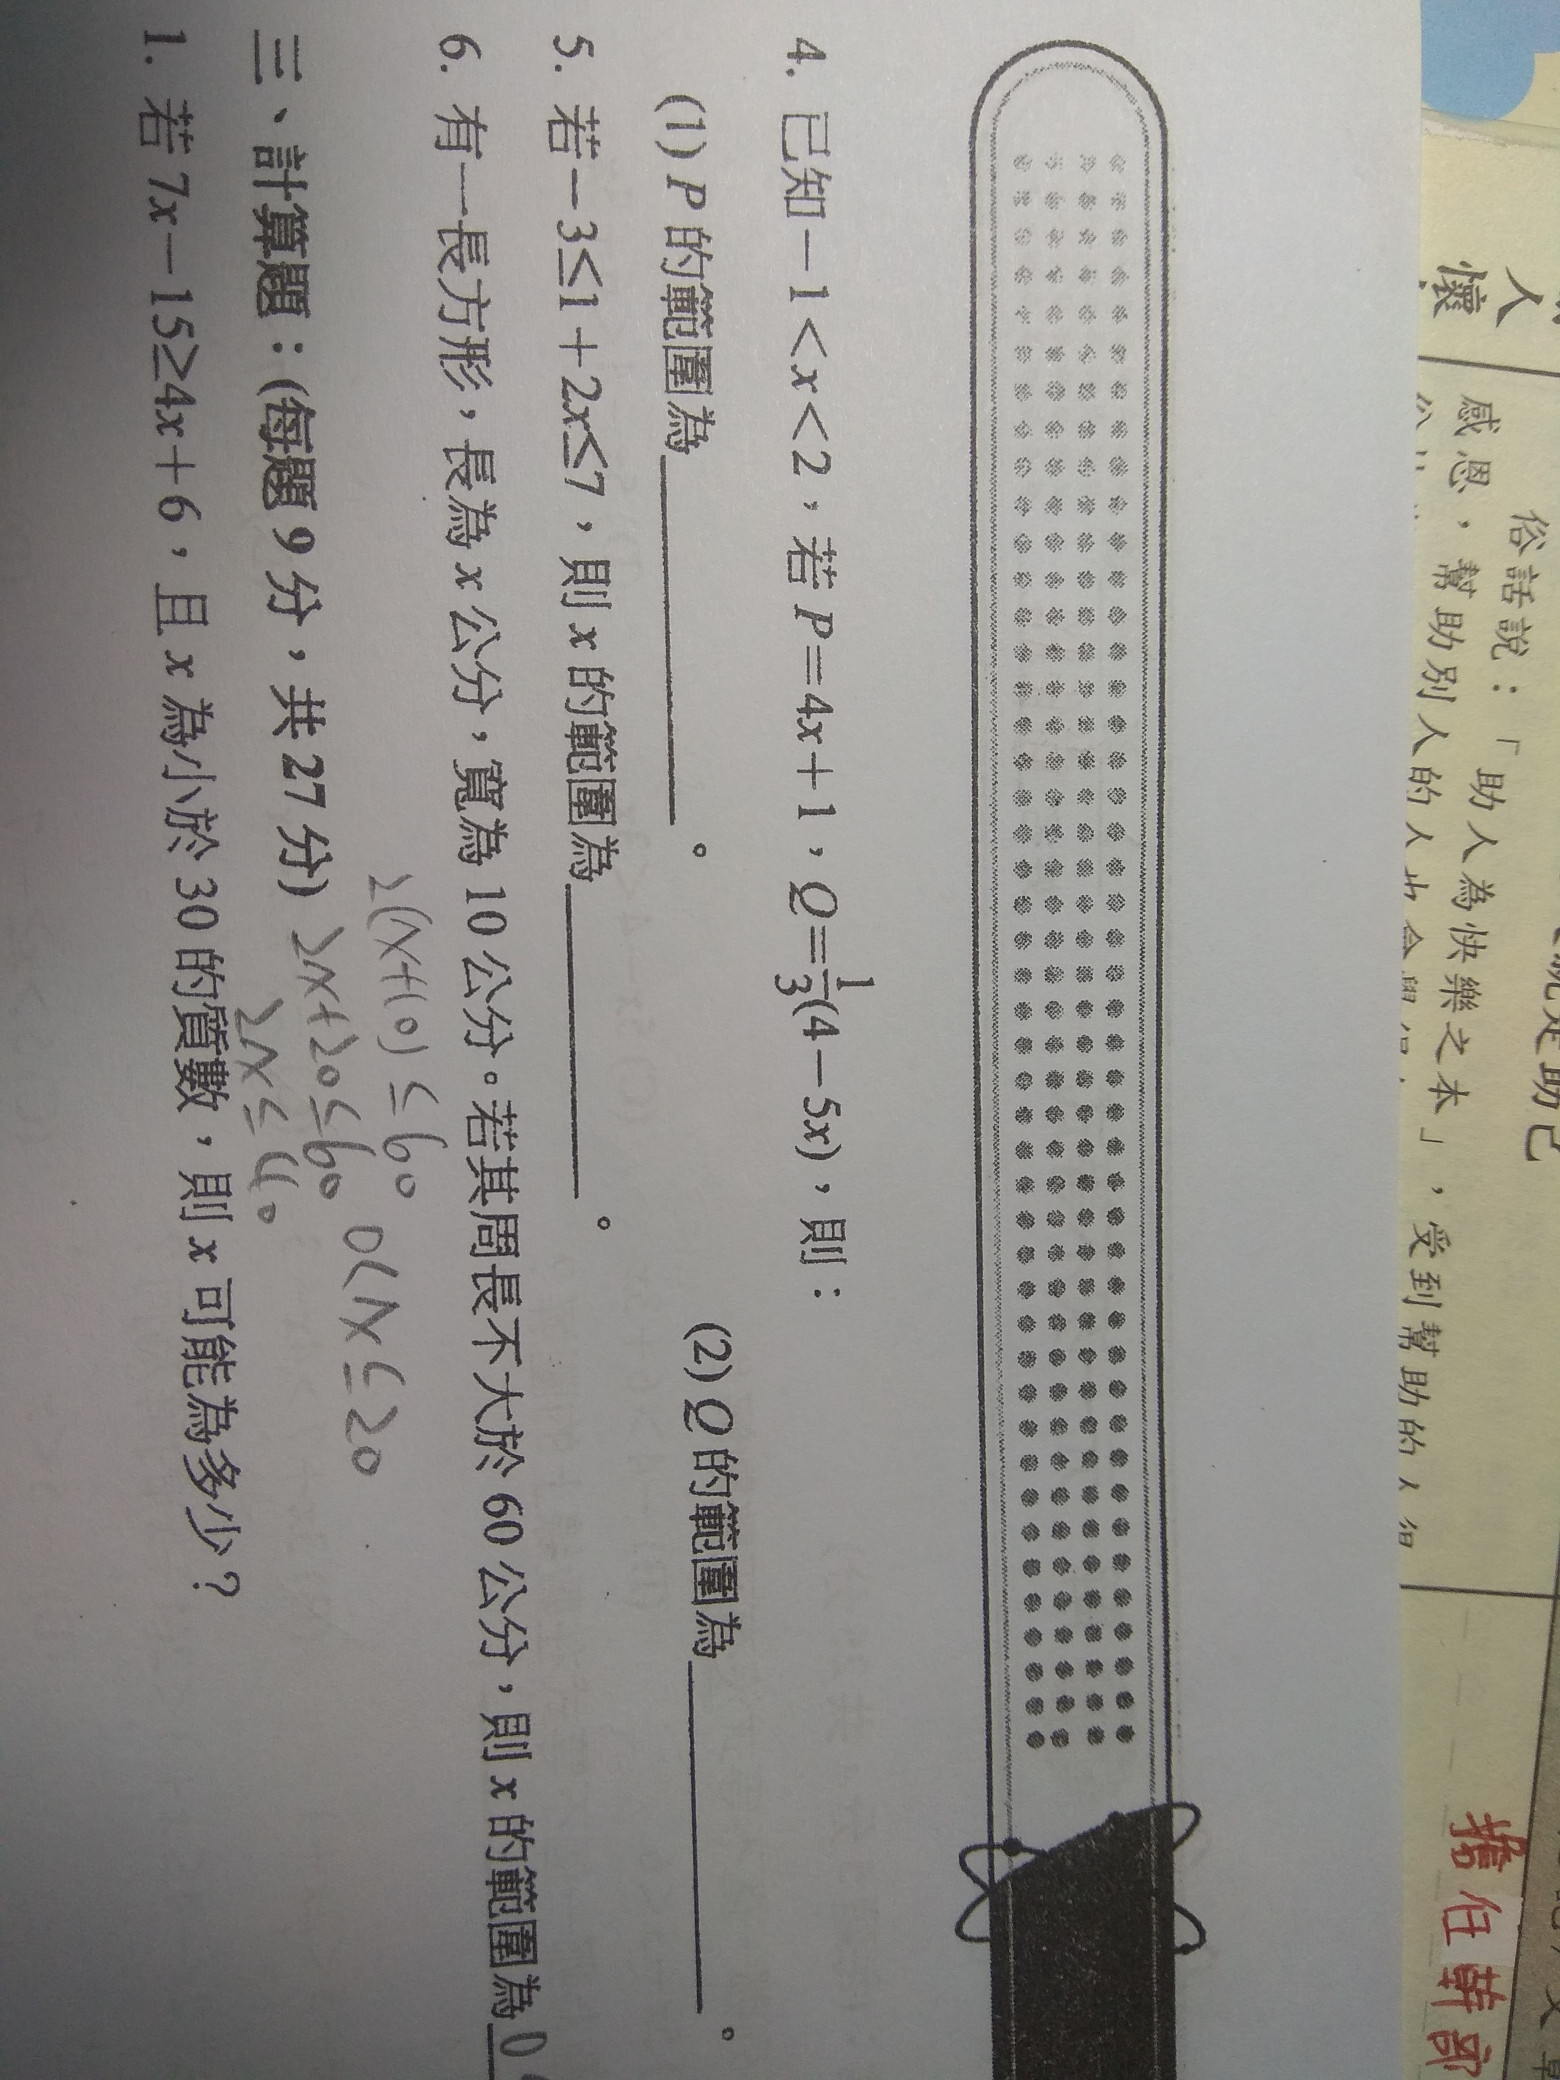 人
懷
俗話說：「助人為快樂之本」，受到幫助的人
感恩，幫助別人的人
擔任幹部
4. 已知－1＜x＜2，若P＝4x＋1，Q＝1/3(4－5x)，則：
(1) P的範圍為＿＿＿＿。 (2) Q的範圍為＿＿＿＿。
5. 若－3≤1＋2x≤7，則x的範圍為＿＿＿＿。
6. 有一長方形，長為x公分，寬為10公分。若其周長不大於60公分，則x的範圍為 0
2(x+10)≤60
2x+20≤60 0<x≤20
2x≤40
三、計算題：(每題9分，共27分)
1. 若7x－15≥4x＋6，且x為小於30的質數，則x可能為多少？